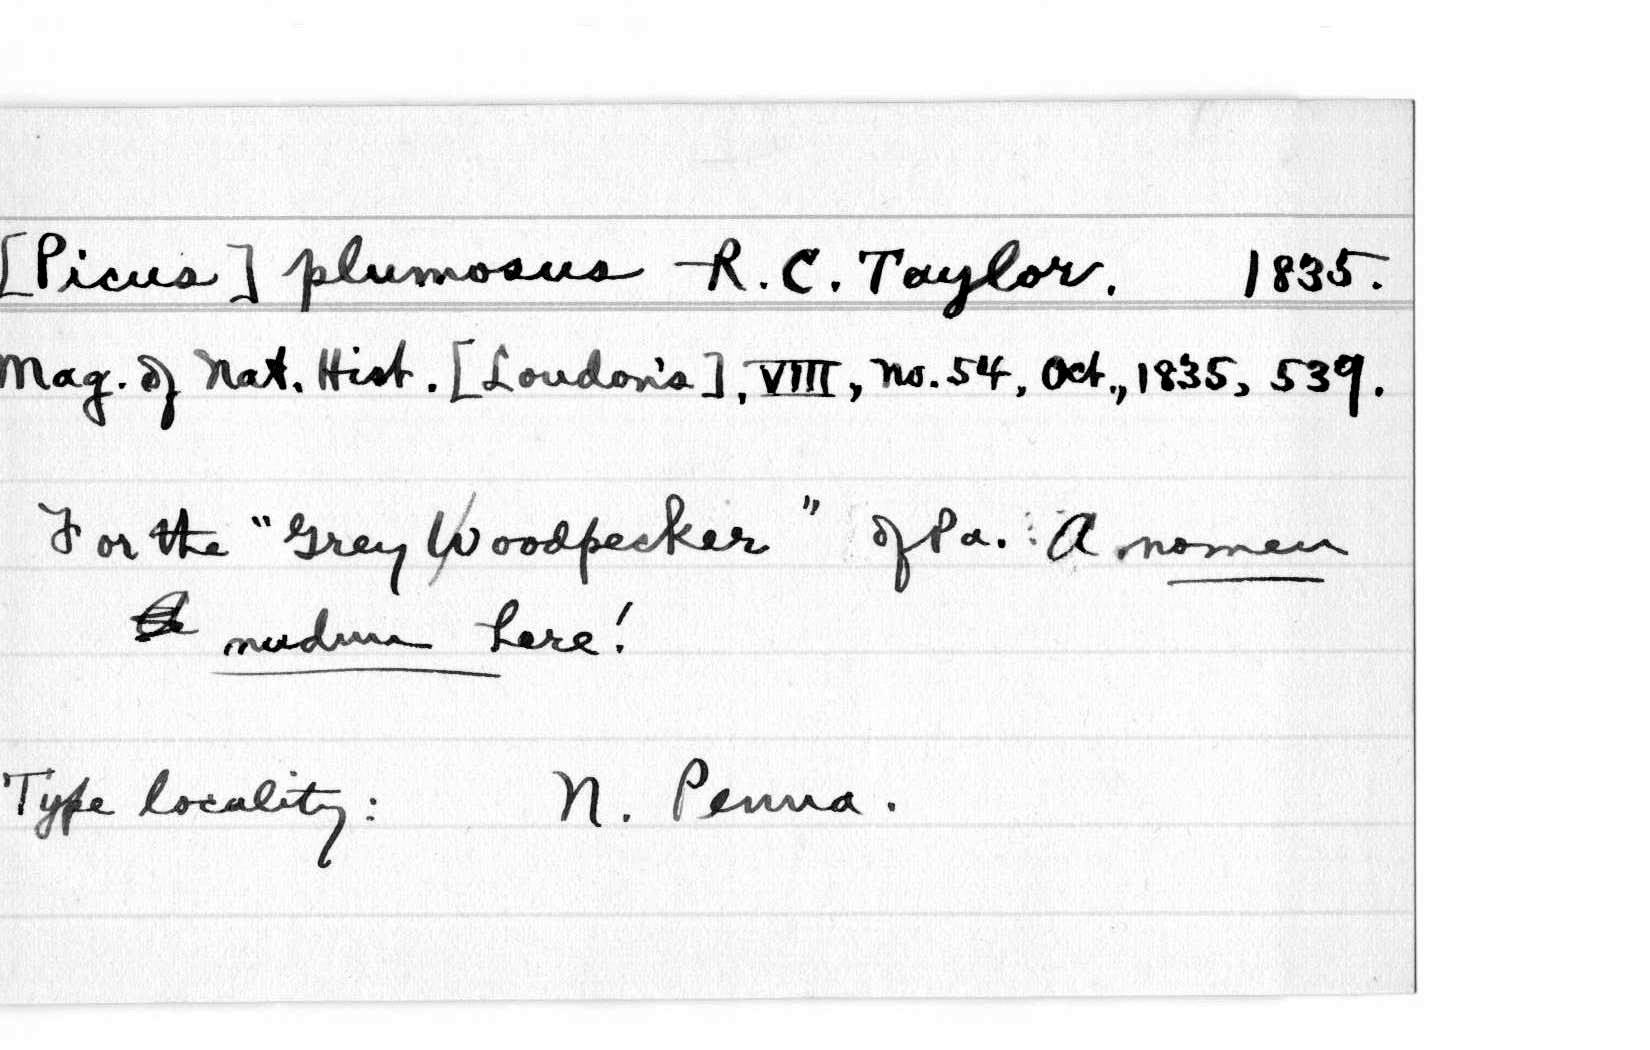 [Picus] plumosus R. C. Taylor. 1835.
Mag. of Nat. Hist. [Loudon's], VIII, no. 54, Oct., 1835, 539.
For the "Grey Woodpecker" of Pa. : A nomen
nudum here!
Type locality: N. Penna.